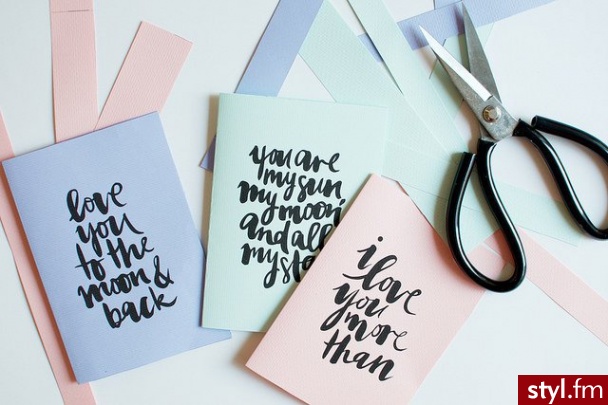 love
you
to the
moon &
back
you are
my sun,
my moon,
and all
my
i
love
you
more
than
styl.fm